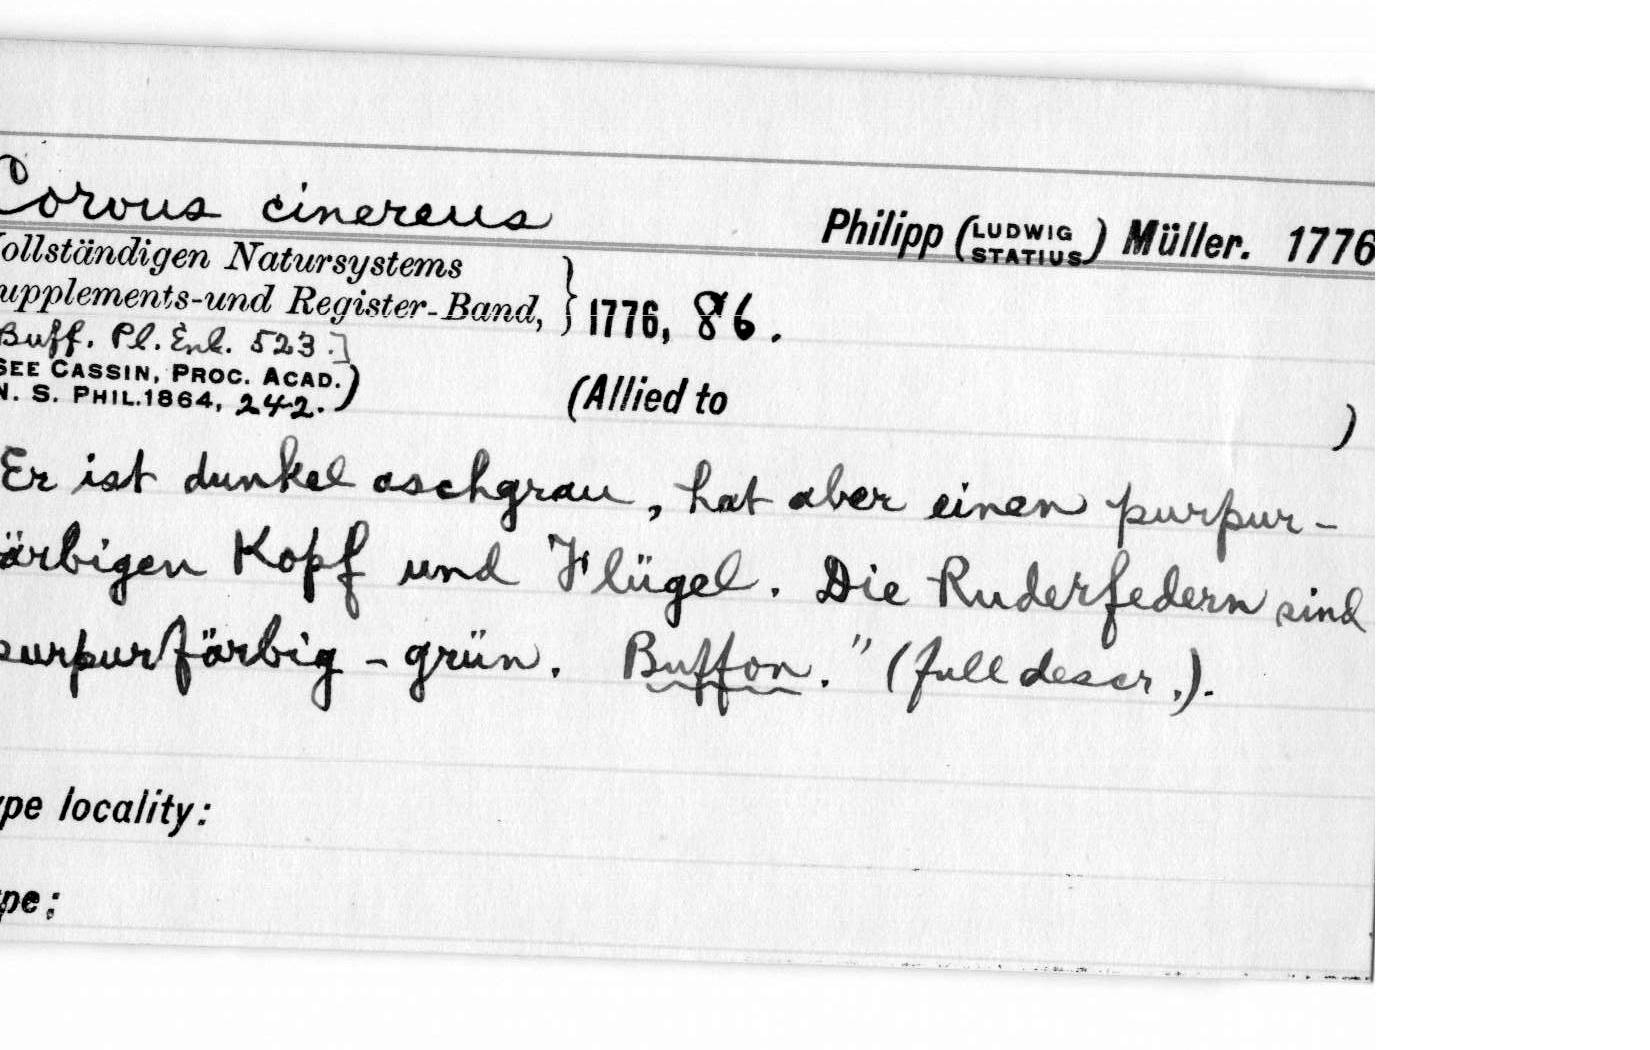 Corvus cinereus
Philipp (LUDWIG STATIUS) Müller. 1776
ollständigen Natursystems
upplements-und Register-Band, } 1776, 86.
Buff. Pl. Enl. 523.]
SEE CASSIN, PROC. ACAD.
N. S. PHIL. 1864, 242.)
(Allied to )
Er ist dunkel aschgrau, hat aber einen purpur-
ärbigen Kopf und Flügel. Die Ruderfedern sind
purpurfärbig-grün. Buffon." (full descr.).
ype locality:
pe: